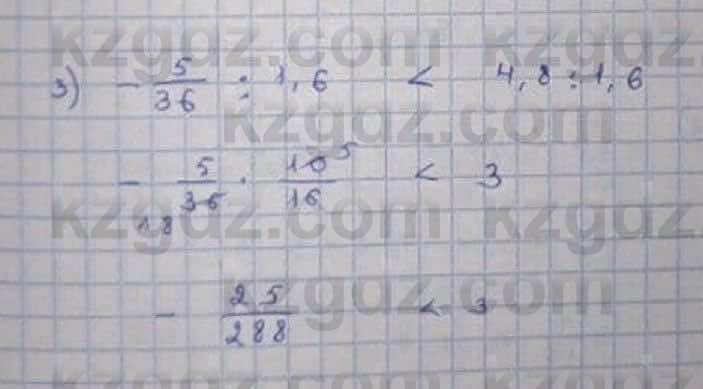 kzgdz.com kzgdz
3) - 5/36 : 1,6 < 4,8 : 1,6
kzgdz.com
- 5/36 · 10/16 < 3
18 5
kzgdz.com kzgdz
kzgdz.com
- 25/288 < 3